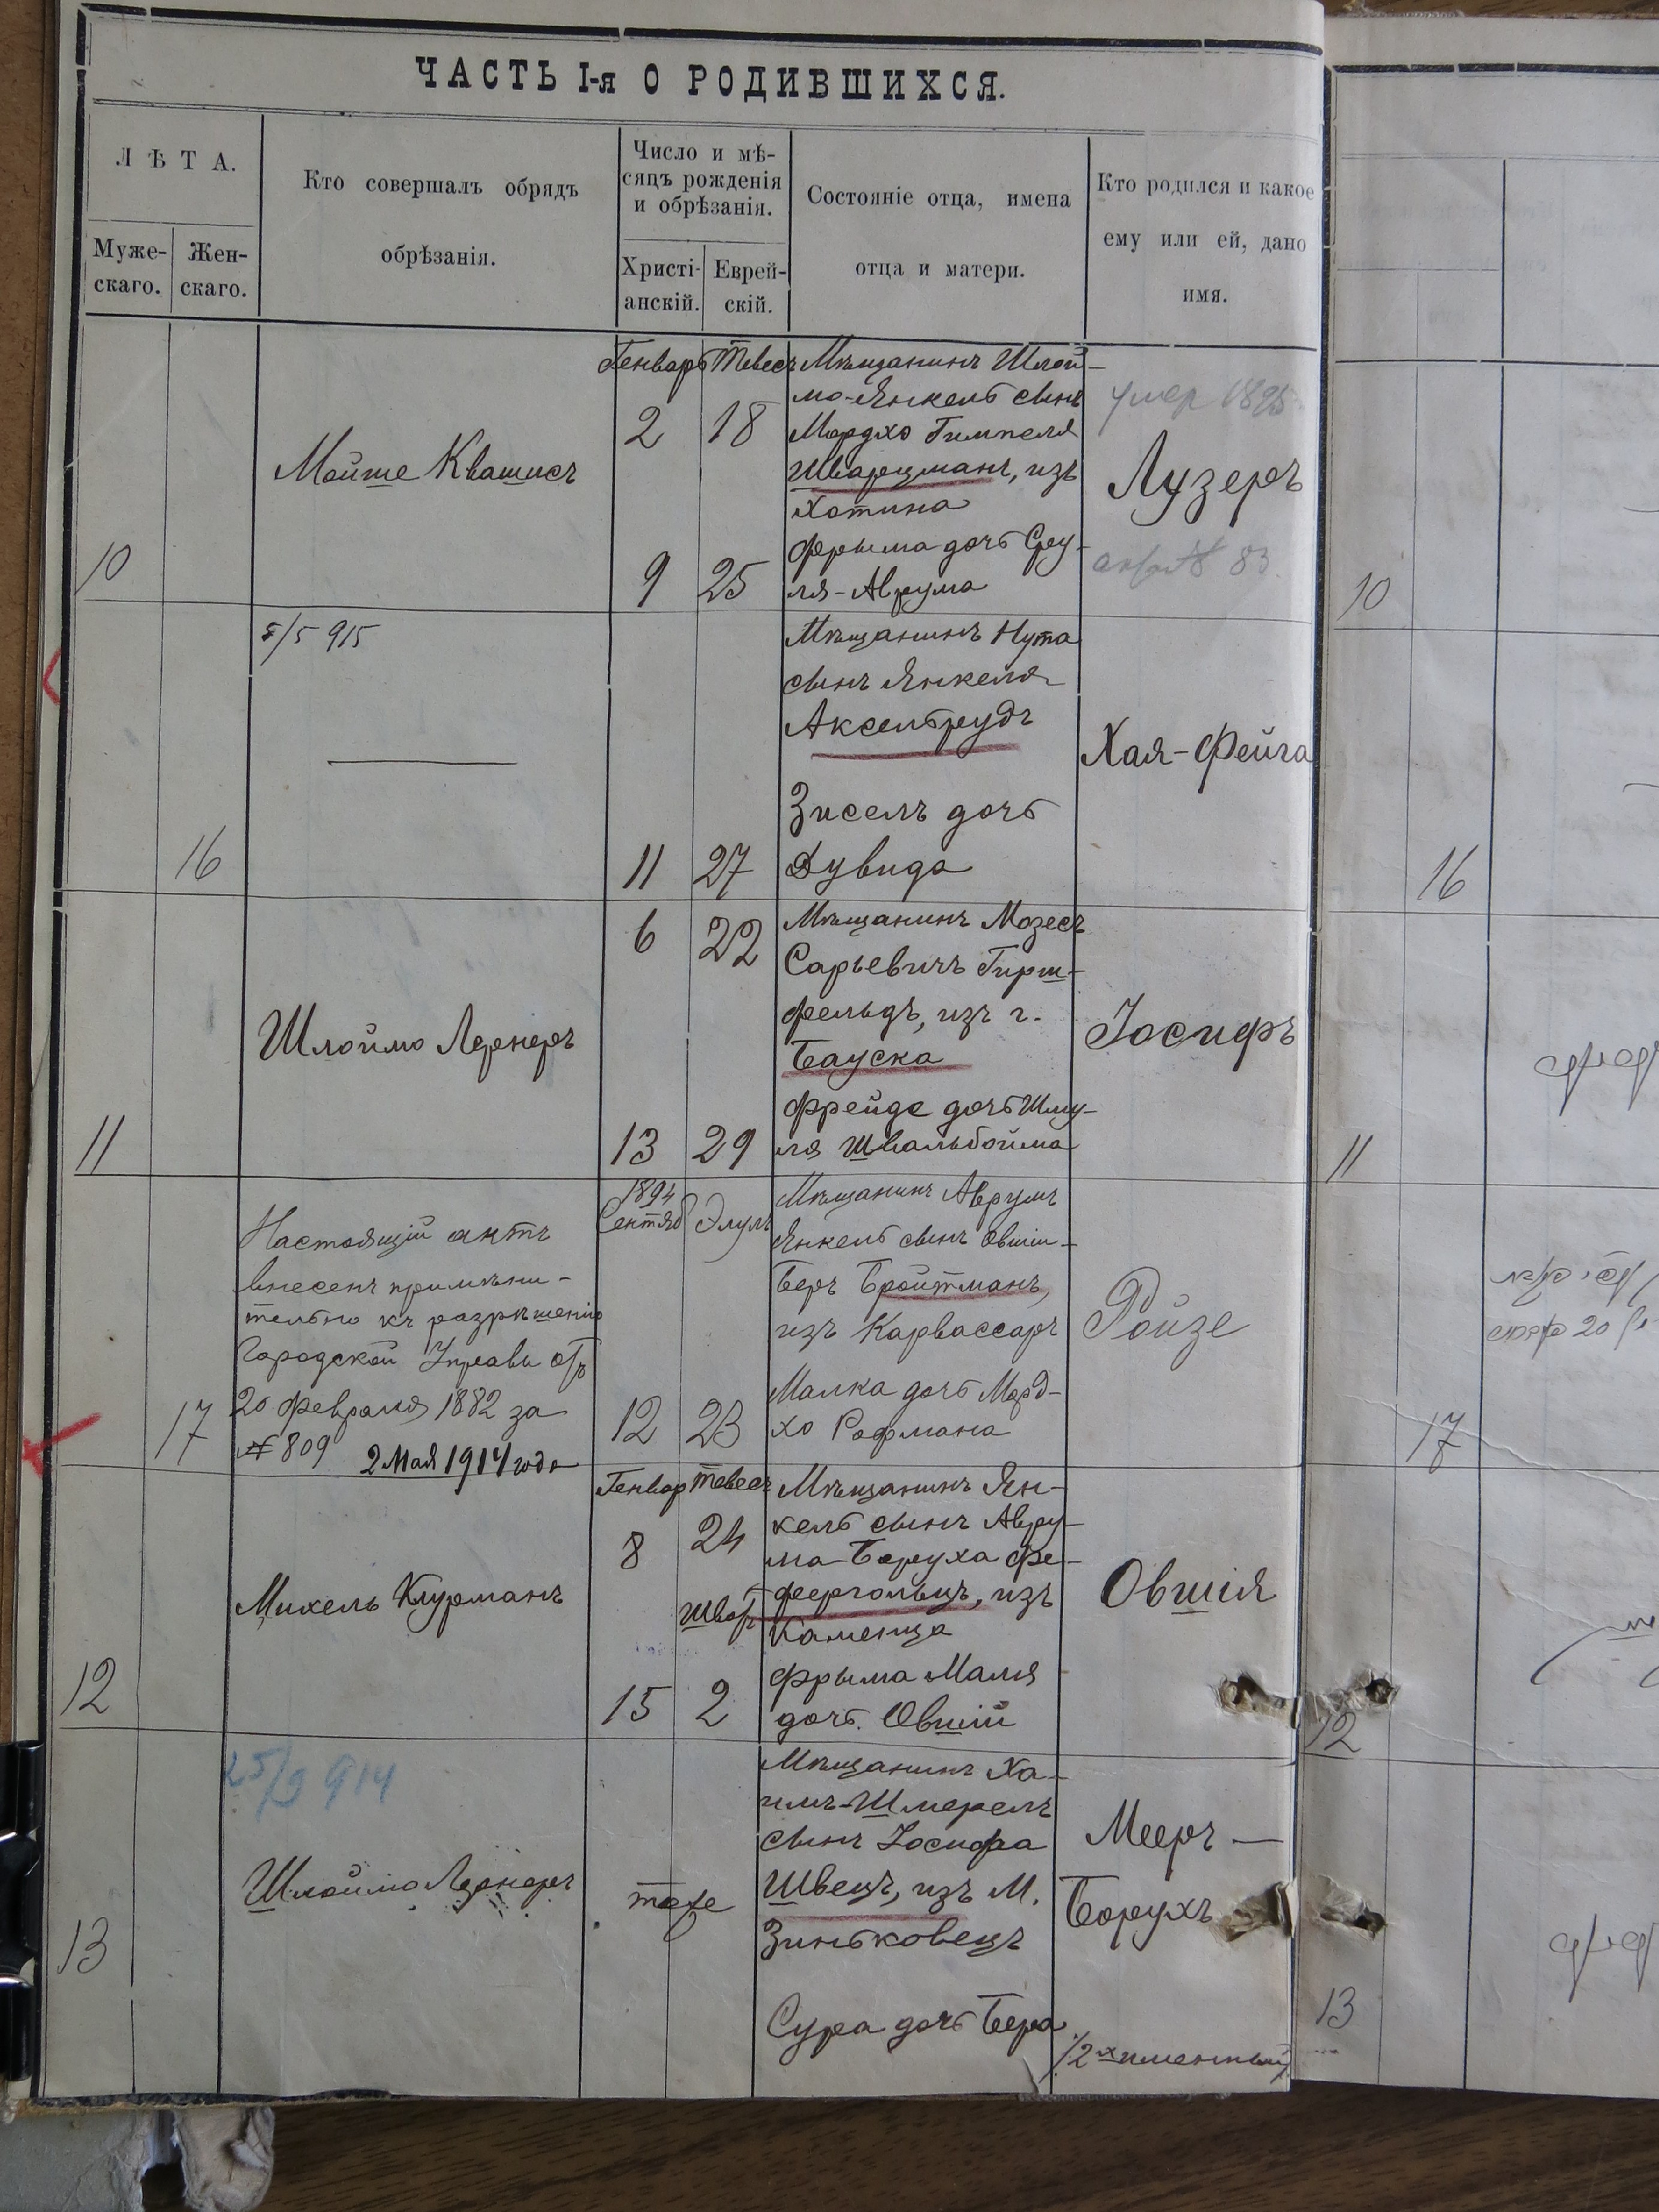 ЧАСТЬ I-я О РОДИВШИХСЯ.
ЛѢТА.
Муже-
скаго.
Жен-
скаго.
Кто совершалъ обрядъ
обрѣзанія.
Число и мѣ-
сяцъ рожденія
и обрѣзанія.
Христі-
анскій.
Еврей-
скій.
Состояніе отца, имена
отца и матери.
Кто родился и какое
ему или ей, дано
имя.
10
Мойше Квашисъ
Генварь Тевесъ
2 18
9 25
Мѣщанинъ Шлой-
мо-Янкель сынъ
Мордхо Гимпеля
Шварцманъ, изъ
Хотина
Фрыма дочь Сру-
ля-Аврума
умер 1895
Лузеръ
актъ № 83.
10
16
5/5 915
11 27
Мѣщанинъ Нута
сынъ Янкеля
Аксельрудъ
Зиселъ дочь
Дувида
Хая-Фейга
16
11
Шлоймо Лернеръ
6 22
13 29
Мѣщанинъ Мозесъ
Сарьевичъ Гирш-
фельдъ, изъ г.
Бауска
Фрейде дочь Шму-
ля Швальбойма
Іосифъ
11
17
Настоящій актъ
внесенъ примѣни-
тельно къ разрѣшенію
Городской Управы отъ
20 февраля 1882 за
№ 809 2 Мая 1914 года
1894
Сентяб Элулъ
12 23
Мѣщанинъ Аврумъ
Янкель сынъ Овшіи-
Беръ Бройтманъ,
изъ Карвассаръ
Малка дочь Морд-
хо Рофмана
Ройзе
17
12
Михель Клурманъ
Генвар Тевесъ
8 24
Шват
15 2
Мѣщанинъ Ян-
кель сынъ Авру-
ма-Боруха Фе-
фергольцъ, изъ
Каменца
Фрыма Маля
дочь Овшіи
Овшія
12
25/3 914
13
Шлоймо Лернеръ
тоже
Мѣщанинъ Ха-
имъ-Шмерелъ
сынъ Іосифа
Швецъ, изъ М.
Зиньковецъ
Сура дочь Бера
Мееръ —
Борухъ
/2хименный/
13